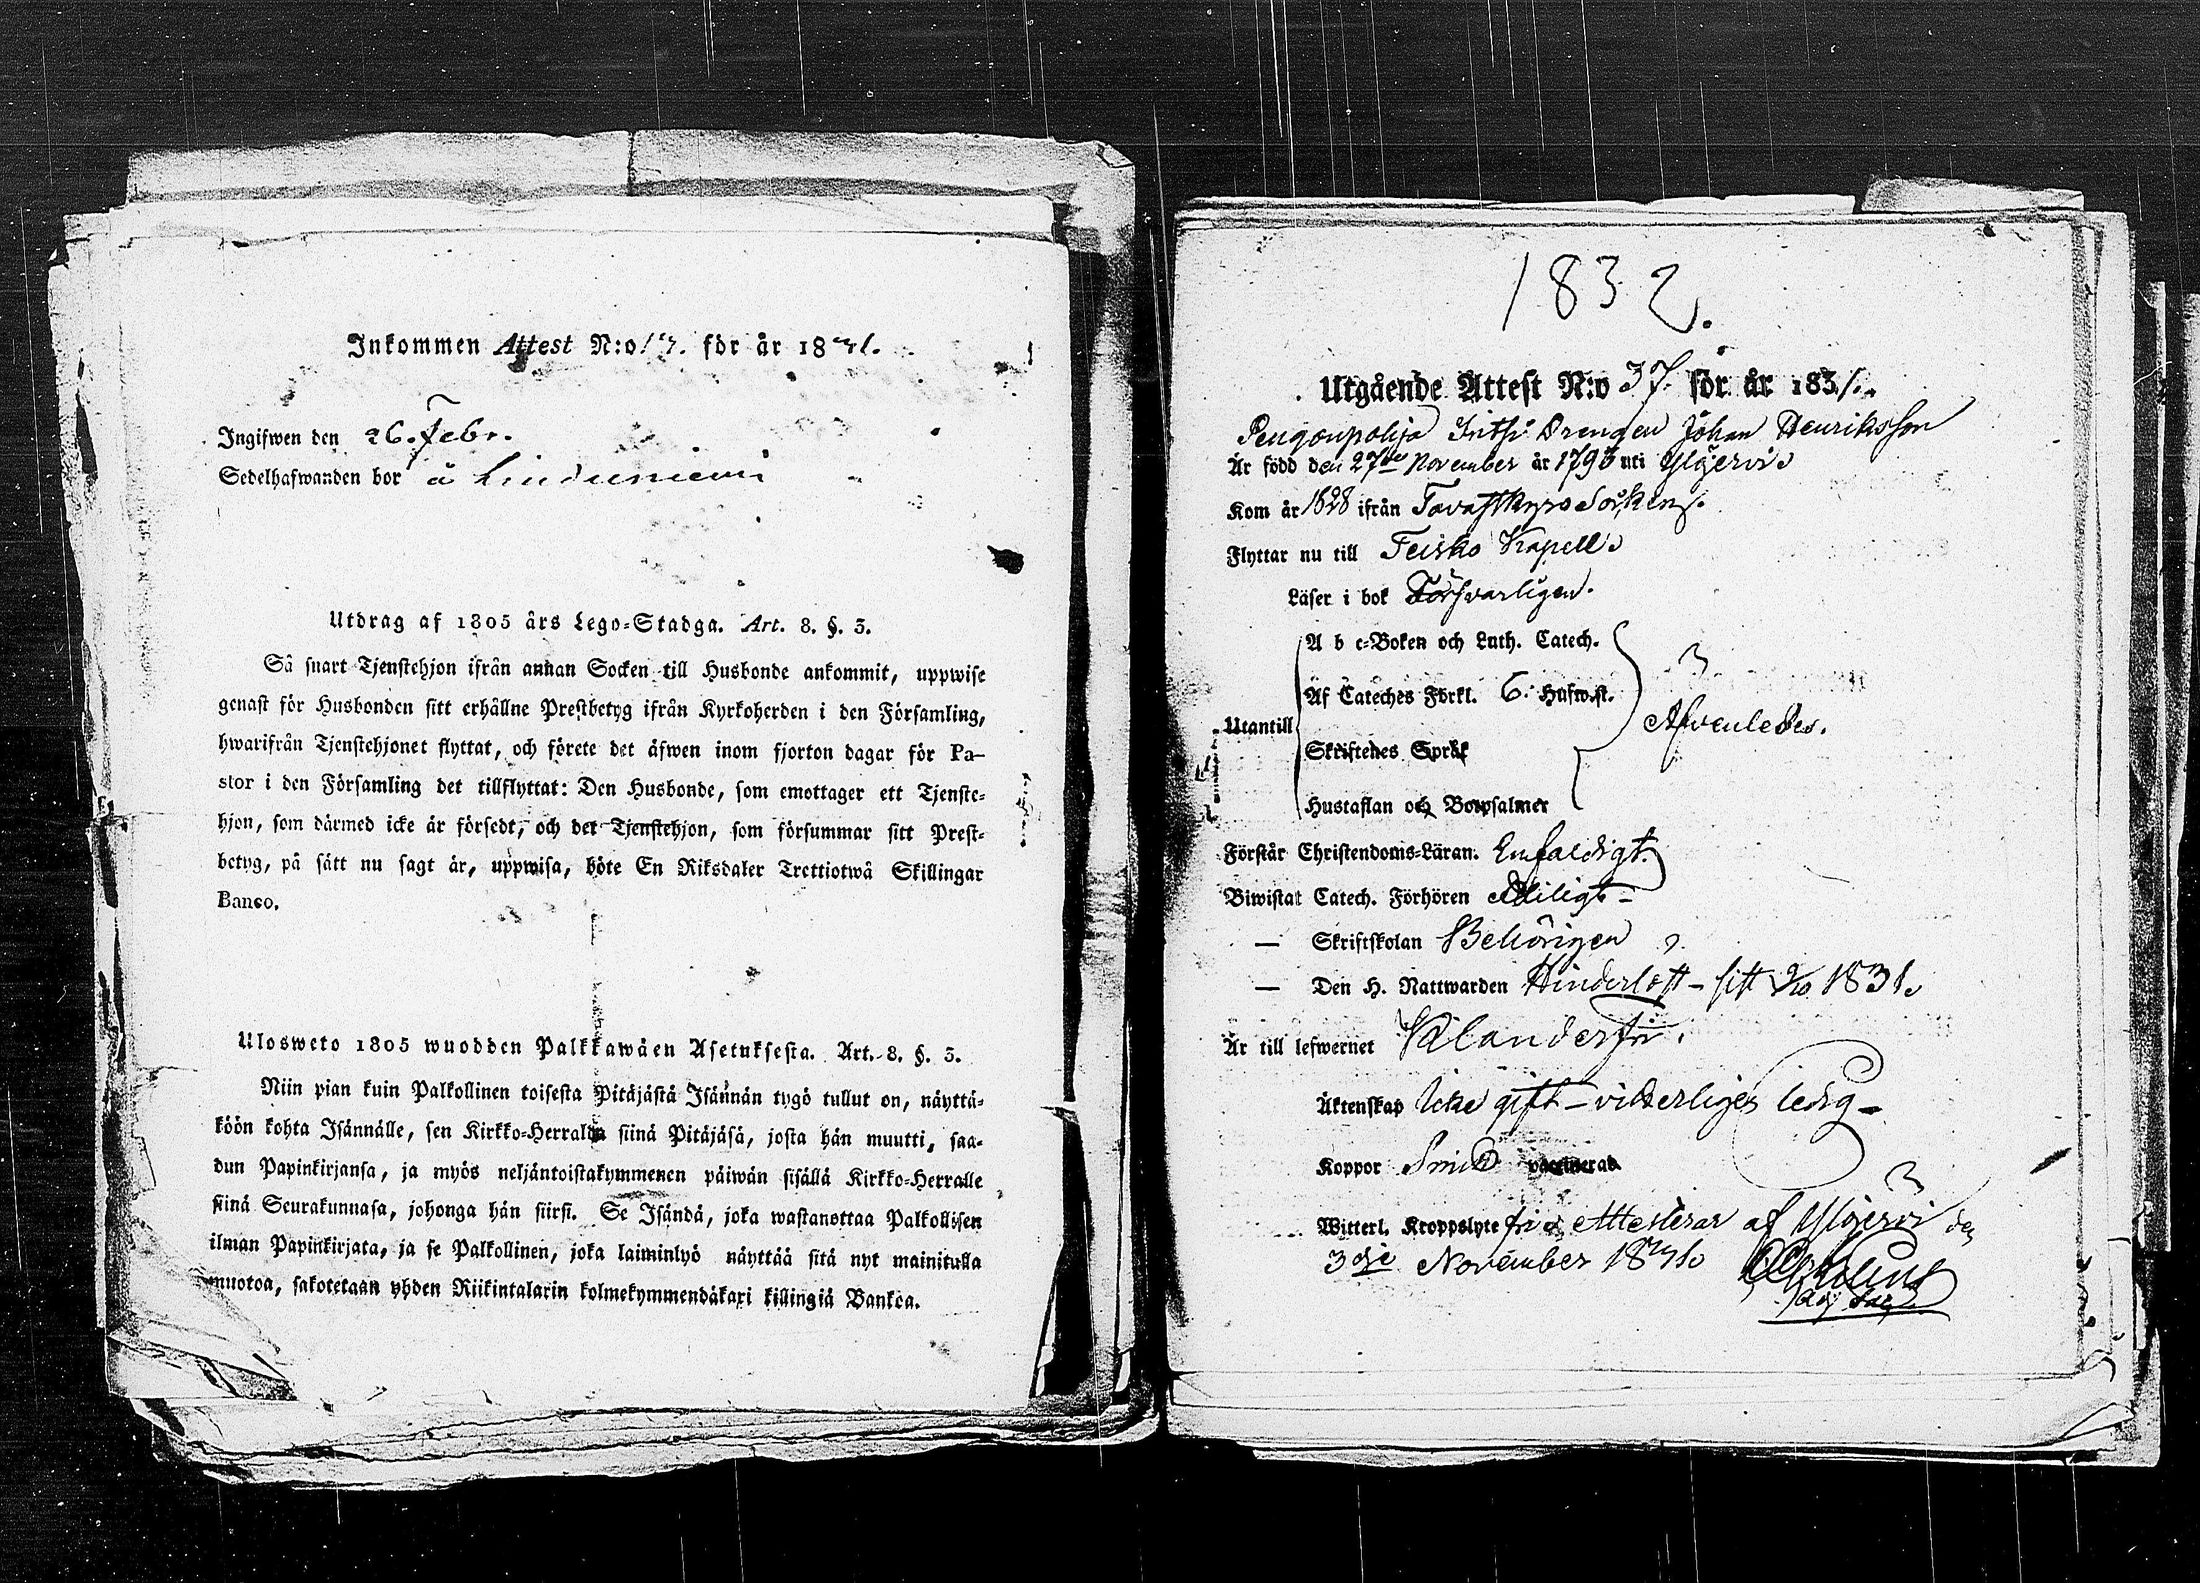 Inkommen Attest N:o 13. för år 1831.
Ingifwen den 26. Febr.
Sedelhafwanden bor å Linduniemi
Utdrag af 1805 års Lego-Stadga. Art. 8. §. 3.
Så snart Tjenstehjon ifrån annan Socken till Husbonde ankommit, uppwise
genast för Husbonden sitt erhållne Prestbetyg ifrån Kyrkoherden i den Församling,
hwarifrån Tjenstehjonet flyttat, och förete det äfwen inom fjorton dagar för Pa-
stor i den Församling det tillflyttat: Den Husbonde, som emottager ett Tjenste-
hjon, som därmed icke är försedt, och det Tjenstehjon, som försummar sitt Prest-
betyg, på sätt nu sagt är, uppwisa, böte En Riksdaler Trettiotwå Skillingar
Banco.
Ulosweto 1805 wuodden Palkkawäen Asetuksesta. Art. 8. §. 3.
Niin pian kuin Palkollinen toisesta Pitäjästä Isännän tygö tullut on, näyttä-
köön kohta Isännälle, sen Kirkko-Herralda siinä Pitäjäsä, josta hän muutti, saa-
dun Papinkirjansa, ja myös neljäntoistakymmenen päiwän sisällä Kirkko-Herralle
siinä Seurakunnasa, johonga hän siirsi. Se Isändä, joka wastanottaa Palkollisen
ilman Papinkirjata, ja se Palkollinen, joka laiminlyö näyttää sitä nyt mainitulla
muotoa, sakotetaan yhden Riikintalarin kolmekymmendäkaxi killingiä Bankca.
1832.
Utgående Attest N:o 37. för år 1831.
Drengen Johan Henriksson
Är född den 27de November år 1793 uti Ylöjervi
Kom år 1828 ifrån Tavastkyro Socken.
Flyttar nu till Teisko Kapell
Läser i bok Försvarligen.
A b c-Boken och Luth. Catech.
Af Cateches Förkl. 6. Husw.st.
Utantill
Afvenledes.
Skriftenes Språk
Hustaflan och Botpsalmer
Förstår Christendoms-Läran. Enfaldigt.
Biwistat Catech. Förhören Flitigt
— Skriftskolan Behörigen
— Den H. Nattwarden Hinderlöst - sist 9/10 1831.
Är till lefwernet Klanderfri.
Äktenskap Icke gift - vitterligen ledig
Koppor vaccinerad
Witterl. Kroppslyte fri Attesterar af Ylöjervi den
3dje November 1831.